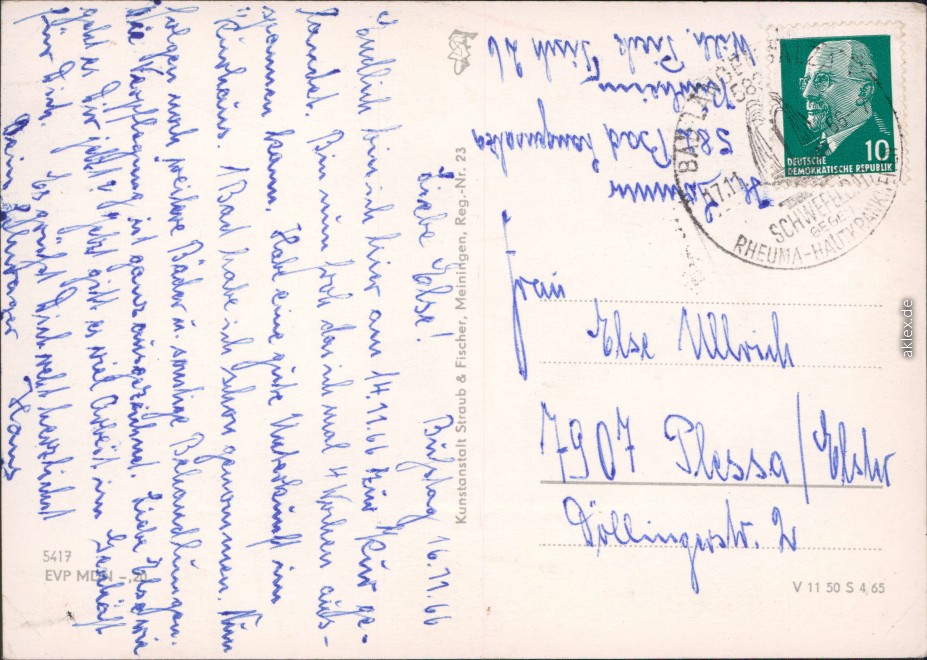 Bußtag 16.11.66
Liebe Else!
Endlich bin ich hier am 14.11.66 zur Kur ge-
landet. Bin nun froh das ich mal 4 Wochen aus-
spannen kann. Habe eine gute Unterkunft im
Kurhaus. 1 Bad habe ich schon genommen. Nun
folgen noch weitere Bäder u. sonstige Behandlungen.
Die Verpflegung ist ganz ausgezeichnet. Liebe Else wie
geht es Dir jetzt, jetzt gibt es viel Arbeit im Geschäft
für Dich. Es grüßt Dich recht herzlichst
Dein Schwager Hans
Kunstanstalt Straub & Fischer, Meiningen, Reg.-Nr. 23
5417
EVP MDN -,20
58 Bad Langensalza
Kurheim
Wilh. Pieck
DEUTSCHE
DEMOKRATISCHE REPUBLIK
10
BAD LANGENSALZA
SCHWEFEL
GEGEN
RHEUMA-HAUTKRANKHEITEN
Frau
Else Ullrich
7907 Plessa/Elster
Döllingerstr. 2
V 11 50 S 4/65
aklex.de